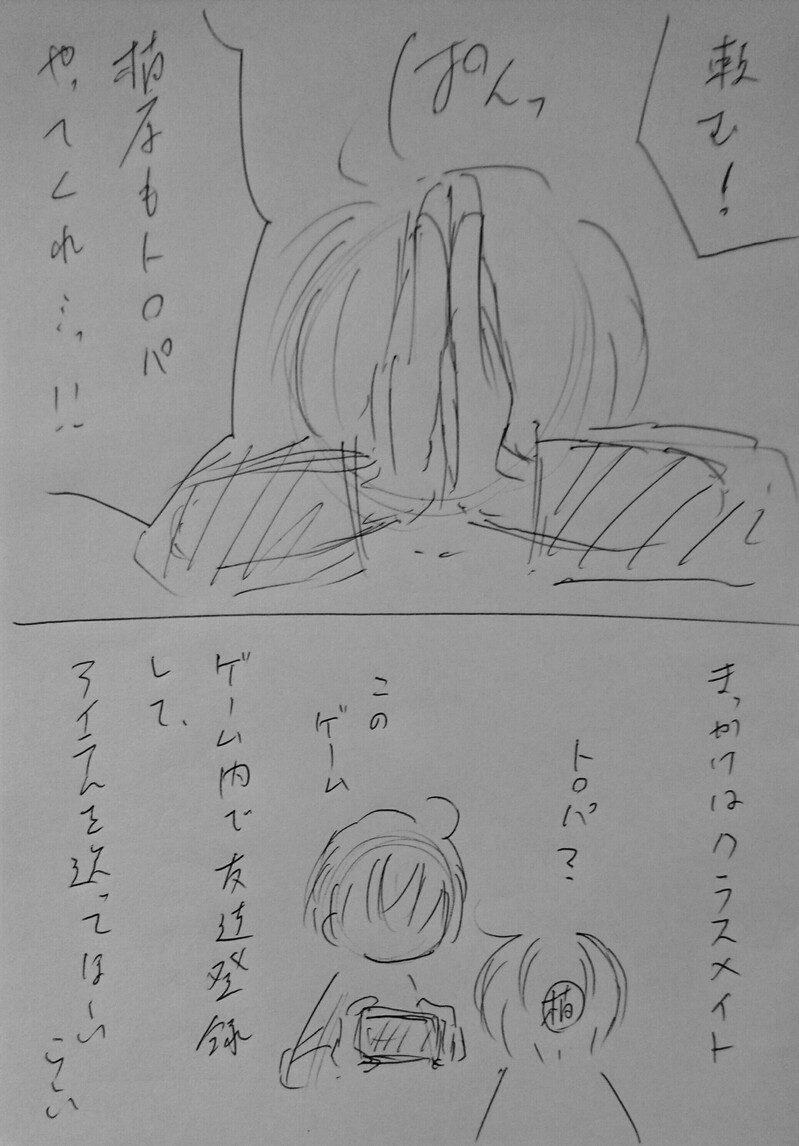 頼む!
ぱんっ
植尽もトロパ
やってくれ…っ!!
きっかけはクラスメイト
トロパ?
植
この
ゲーム
ゲーム内で友達登録
して、
アイテムを送ってほーい
らしい